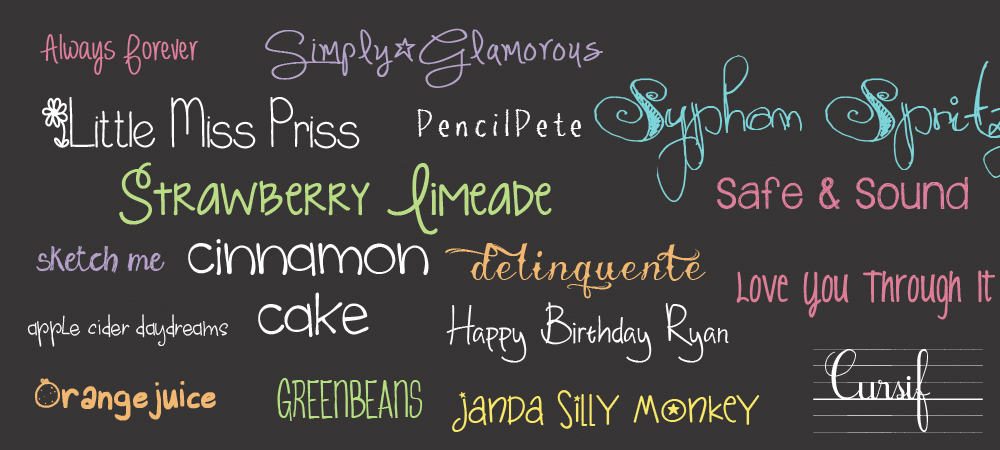 Always Forever
Simply☆Glamorous
Little Miss Priss
PencilPete
Sypham Spritz
Strawberry Limeade
Safe & Sound
sketch me
cinnamon
cake
delinquente
Love You Through It
apple cider daydreams
Happy Birthday Ryan
Orangejuice
GREENBEANS
Janda Silly Monkey
Cursif